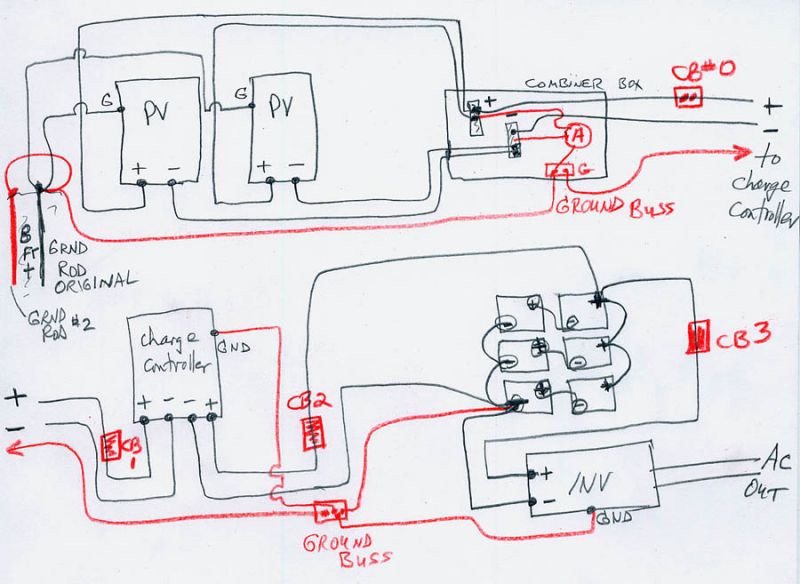 COMBINER BOX
CB#0
G
PV
+ -
G
PV
+ -
+
-
A
G
GROUND BUSS
+
-
to
Charge
Controller
8
FT
+
GRND
ROD
ORIGINAL
GRND
ROD #2
Charge
Controller
GND
+ - - +
+
-
CB
1
CB2
CB3
+
-
+
-
+
-
+
-
+
-
+
-
+
-
INV
GND
AC
OUT
GROUND
BUSS